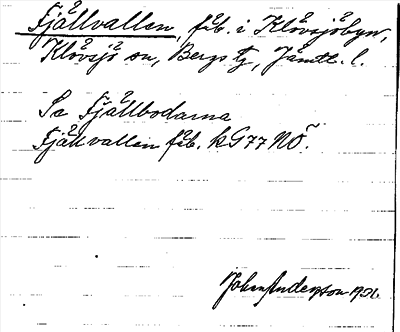 Fjällvallen, fäb. i Klövsjöbyn,
Klövsjö sn, Bergs tg, Jämtl. l.
Se Fjällbodarna
Fjällvallen fäb. kG77NÖ.
Johan Anderson 1936.